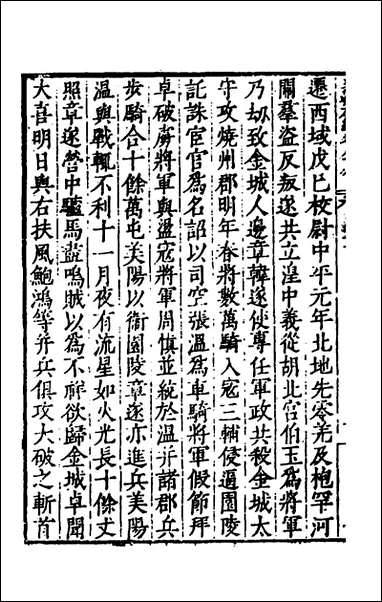 遷西域戊己校尉中平元年北地先零羌及枹罕河
關羣盜反叛遂共立湟中義從胡北宮伯玉爲將軍
乃劫致金城人邊章韓遂使專任軍政共殺金城太
守攻燒州郡明年春將數萬騎入寇三輔侵逼園陵
託誅宦官爲名詔以司空張溫爲車騎將軍假節拜
卓破虜將軍與盪寇將軍周慎並統於溫并諸郡兵
步騎合十餘萬屯美陽以衞園陵章遂亦進兵美陽
溫與戰輒不利十一月夜有流星如火光長十餘丈
照章遂營中驢馬盡鳴賊以為不祥欲歸金城卓聞
大喜明日與右扶風鮑鴻等并兵俱攻大破之斬首